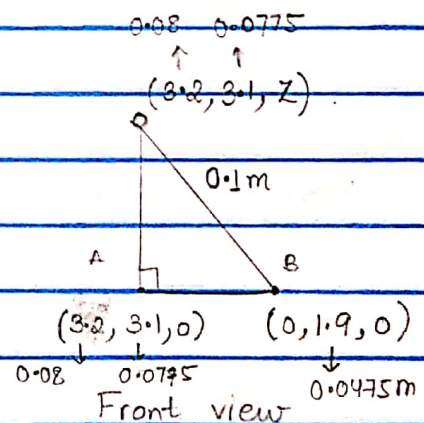 0.08 0.0775
↑ ↑
(3.2, 3.1, Z)
0.1m
A B
(3.2, 3.1, 0) (0, 1.9, 0)
↓ ↓ ↓
0.08 0.0775 0.0475m
Front view